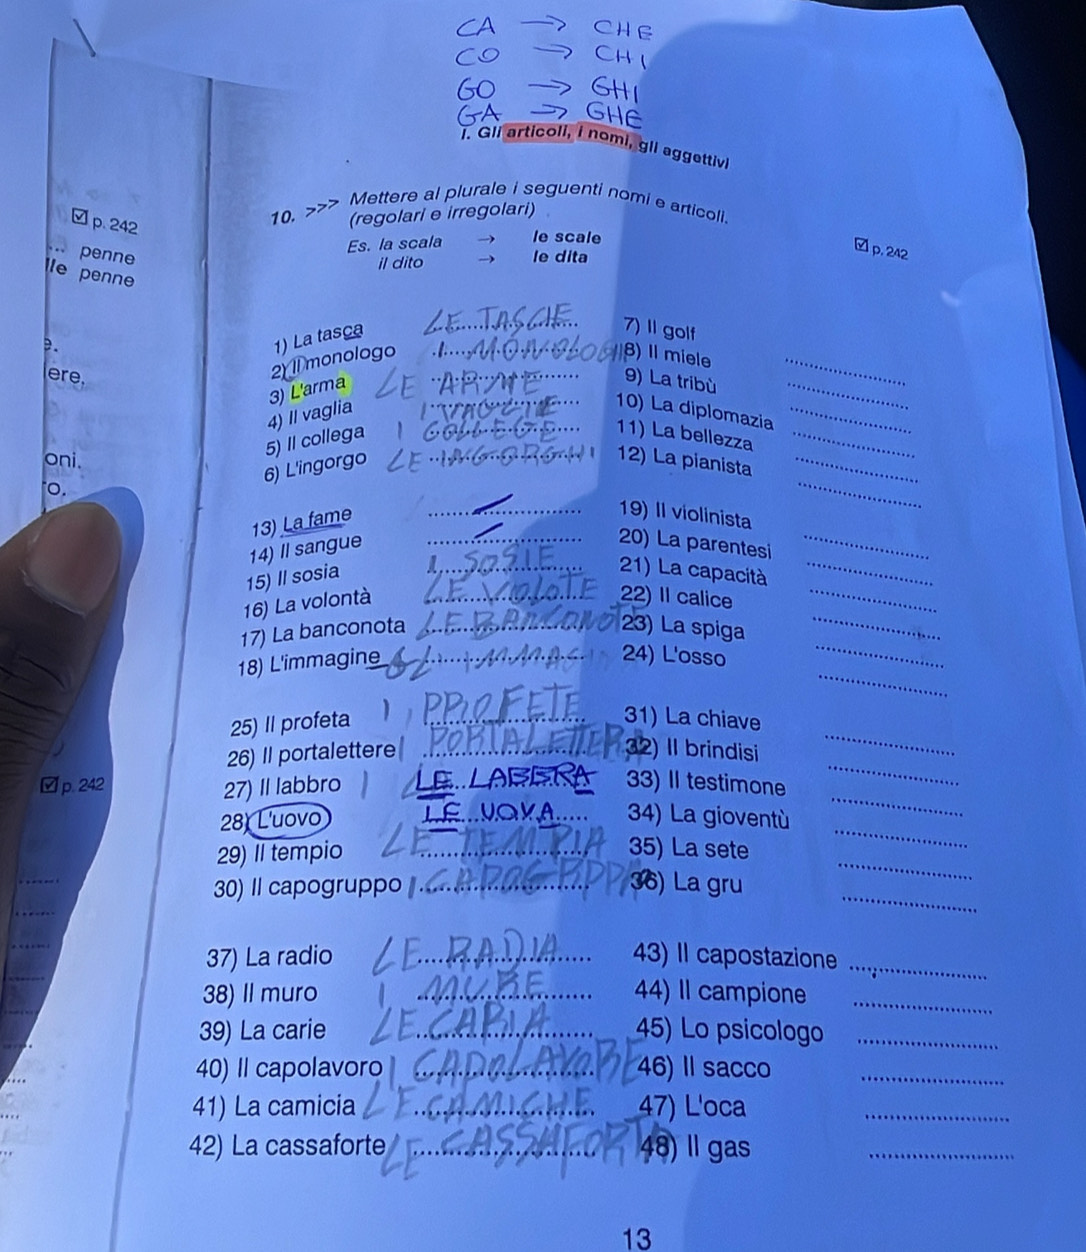 CA → CHE
CO → CHI
GO → GHI
GA → GHE
I. Gli articoli, i nomi, gli aggettivi
p. 242
... penne
lle penne
e.
ere.
oni.
o.
p. 242
10. >>> Mettere al plurale i seguenti nomi e articoli.
(regolari e irregolari)
Es. la scala → le scale
il dito → le dita
p. 242
1) La tasca
2) Il monologo
3) L'arma LE ARME
4) Il vaglia
5) Il collega I COLLEGE
6) L'ingorgo LE INGORGHI
7) Il golf
8) Il miele
9) La tribù
10) La diplomazia
11) La bellezza
12) La pianista
13) La fame
14) Il sangue
15) Il sosia I SOSIE
16) La volontà LE VOLOTE
17) La banconota LE BANCONOTE
18) L'immagine
19) Il violinista
20) La parentesi
21) La capacità
22) Il calice
23) La spiga
24) L'osso
25) Il profeta I PROFETE
26) Il portalettere I PORTALETTERA
27) Il labbro LE LABBRA
28) L'uovo LE UOVA
29) Il tempio LE TEMPIA
30) Il capogruppo
31) La chiave
32) Il brindisi
33) Il testimone
34) La gioventù
35) La sete
36) La gru
37) La radio LE RADIA
38) Il muro I MURE
39) La carie LE CARIA
40) Il capolavoro I CAPOLAVORE
41) La camicia LE CAMICHE
42) La cassaforte LE CASSAFORTA
43) Il capostazione
44) Il campione
45) Lo psicologo
46) Il sacco
47) L'oca
48) Il gas
13